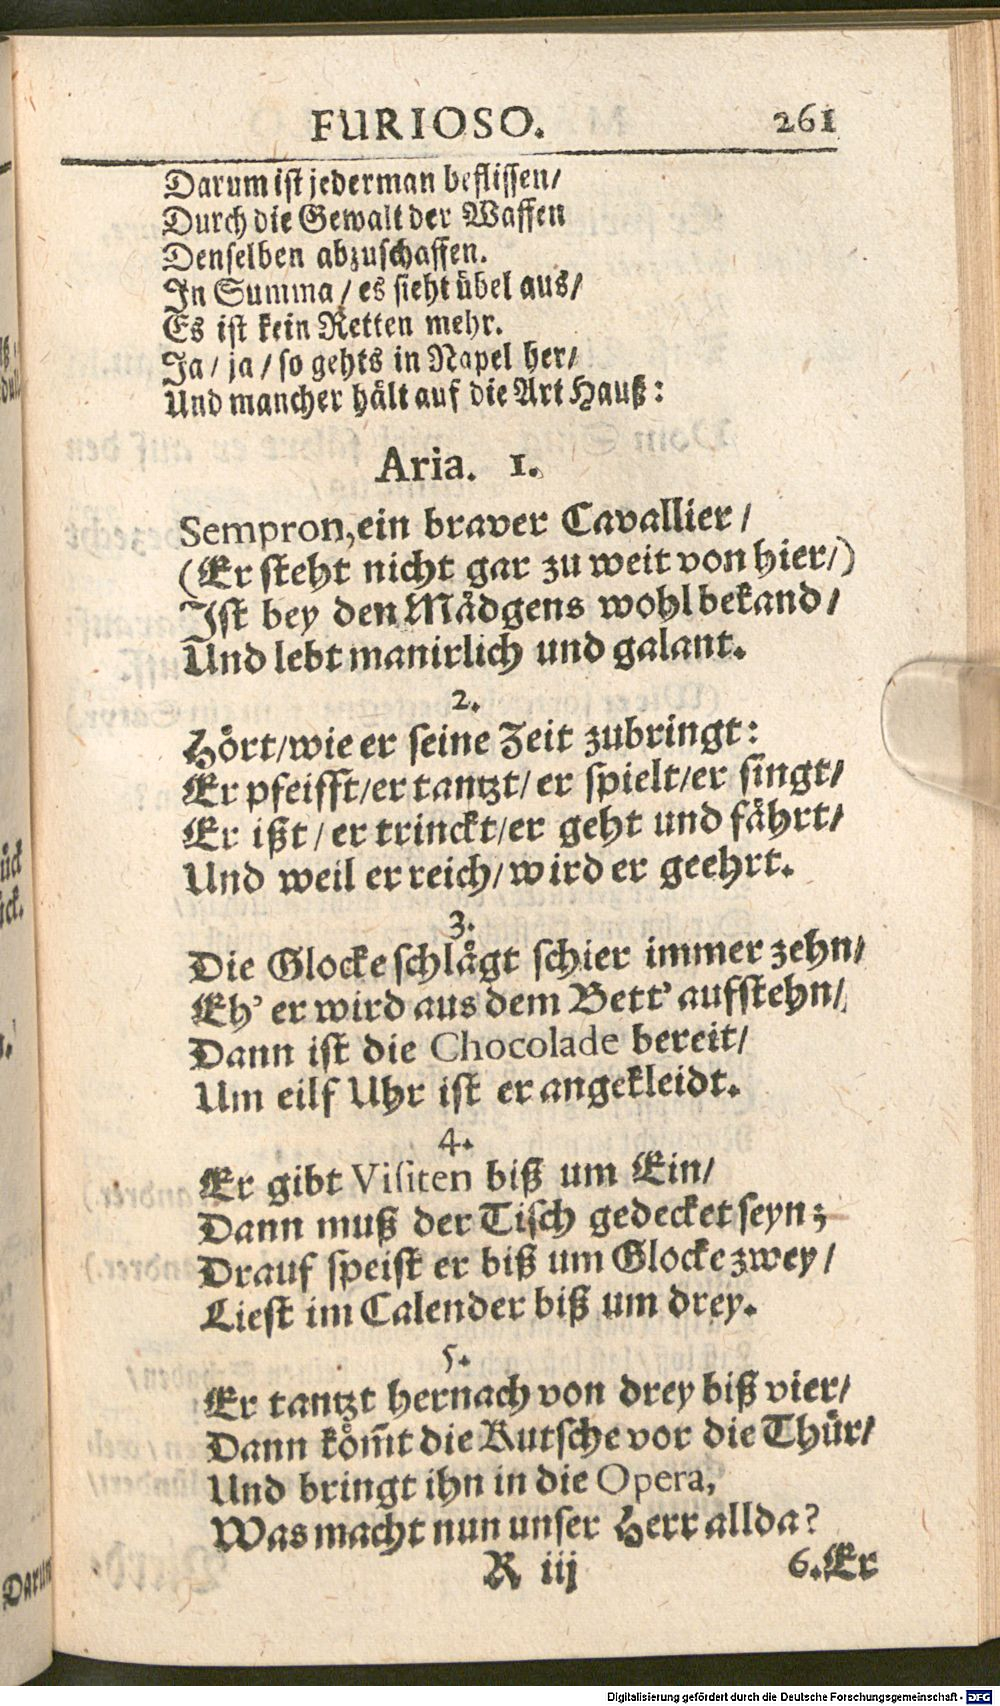 FURIOSO. 261
Darum ist jederman beflissen/
Durch die Gewalt der Waffen
Denselben abzuschaffen.
In Summa / es sieht übel aus/
Es ist kein Retten mehr.
Ja / ja / so gehts in Napel her/
Und mancher hält auf die Art Hauß:
Aria. 1.
Sempron, ein braver Cavallier /
(Er steht nicht gar zu weit von hier/)
Ist bey den Mädgens wohl bekand/
Und lebt manirlich und galant.
2.
Hört/wie er seine Zeit zubringt:
Er pfeifft/er tantzt/ er spielt/er singt/
Er ißt / er trinckt/er geht und fährt/
Und weil er reich/ wird er geehrt.
3.
Die Glocke schlägt schier immer zehn/
Eh' er wird aus dem Bett' aufstehn/
Dann ist die Chocolade bereit/
Um eilf Uhr ist er angekleidt.
4.
Er gibt Visiten biß um Ein/
Dann muß der Tisch gedecket seyn;
Drauf speist er biß um Glocke zwey /
Liest im Calender biß um drey.
5.
Er tantzt hernach von drey biß vier/
Dann köm̃t die Kutsche vor die Thür/
Und bringt ihn in die Opera,
Was macht nun unser Herr allda?
R iij 6. Er
Darum
Digitalisierung gefördert durch die Deutsche Forschungsgemeinschaft - DFG